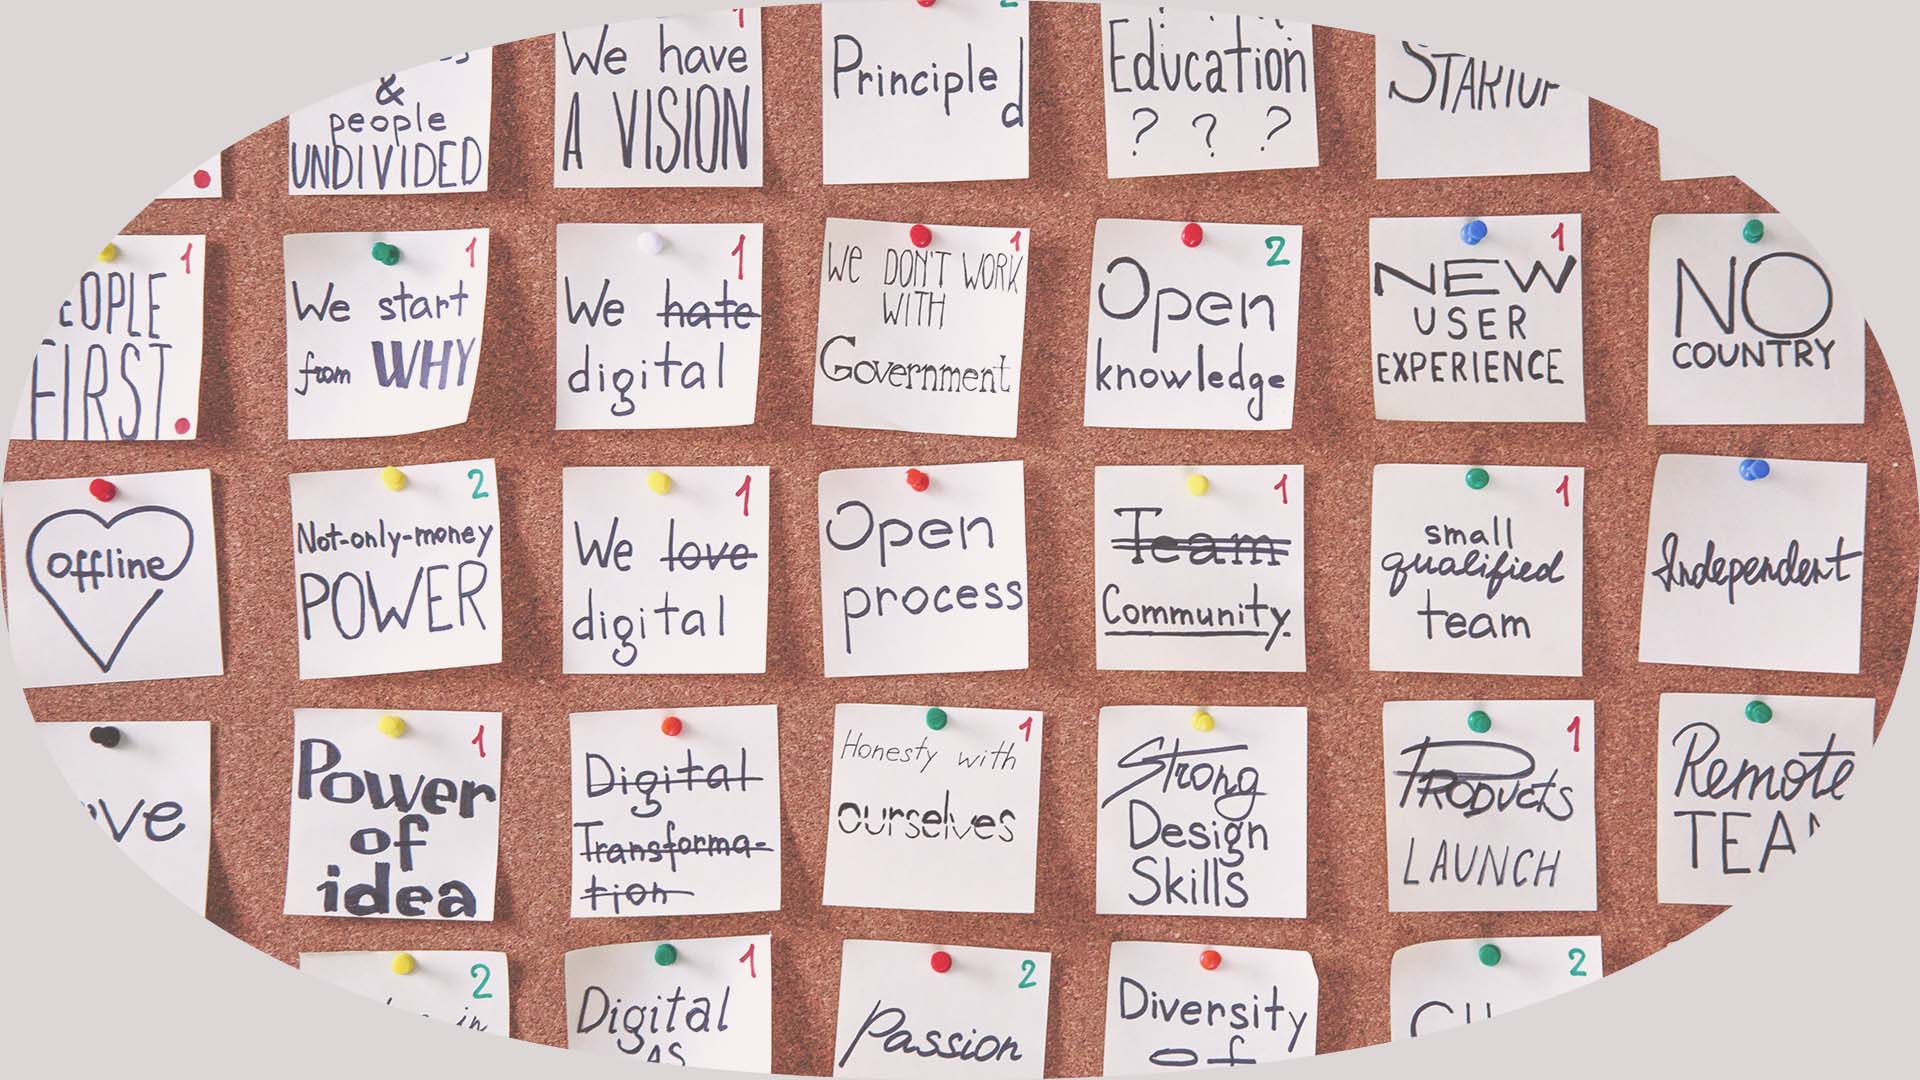 &
people
UNDIVIDED
1
We have
A VISION
Principled
2
Education
? ? ?
STARTUP
1
PEOPLE
FIRST
1
We start
from WHY
1
We hate
digital
1
WE DON'T WORK
WITH
Government
2
Open
knowledge
1
NEW
USER
EXPERIENCE
NO
COUNTRY
offline
2
Not-only-money
POWER
1
We love
digital
Open
process
1
Team
Community.
1
small
qualified
team
Independent
1
Power
of
idea
Digital
Transforma-
tion
1
Honesty with
ourselves
Strong
Design
Skills
1
PRODUCTS
LAUNCH
Remote
TEAM
2
in
1
Digital
AS
2
Passion
Diversity
of
2